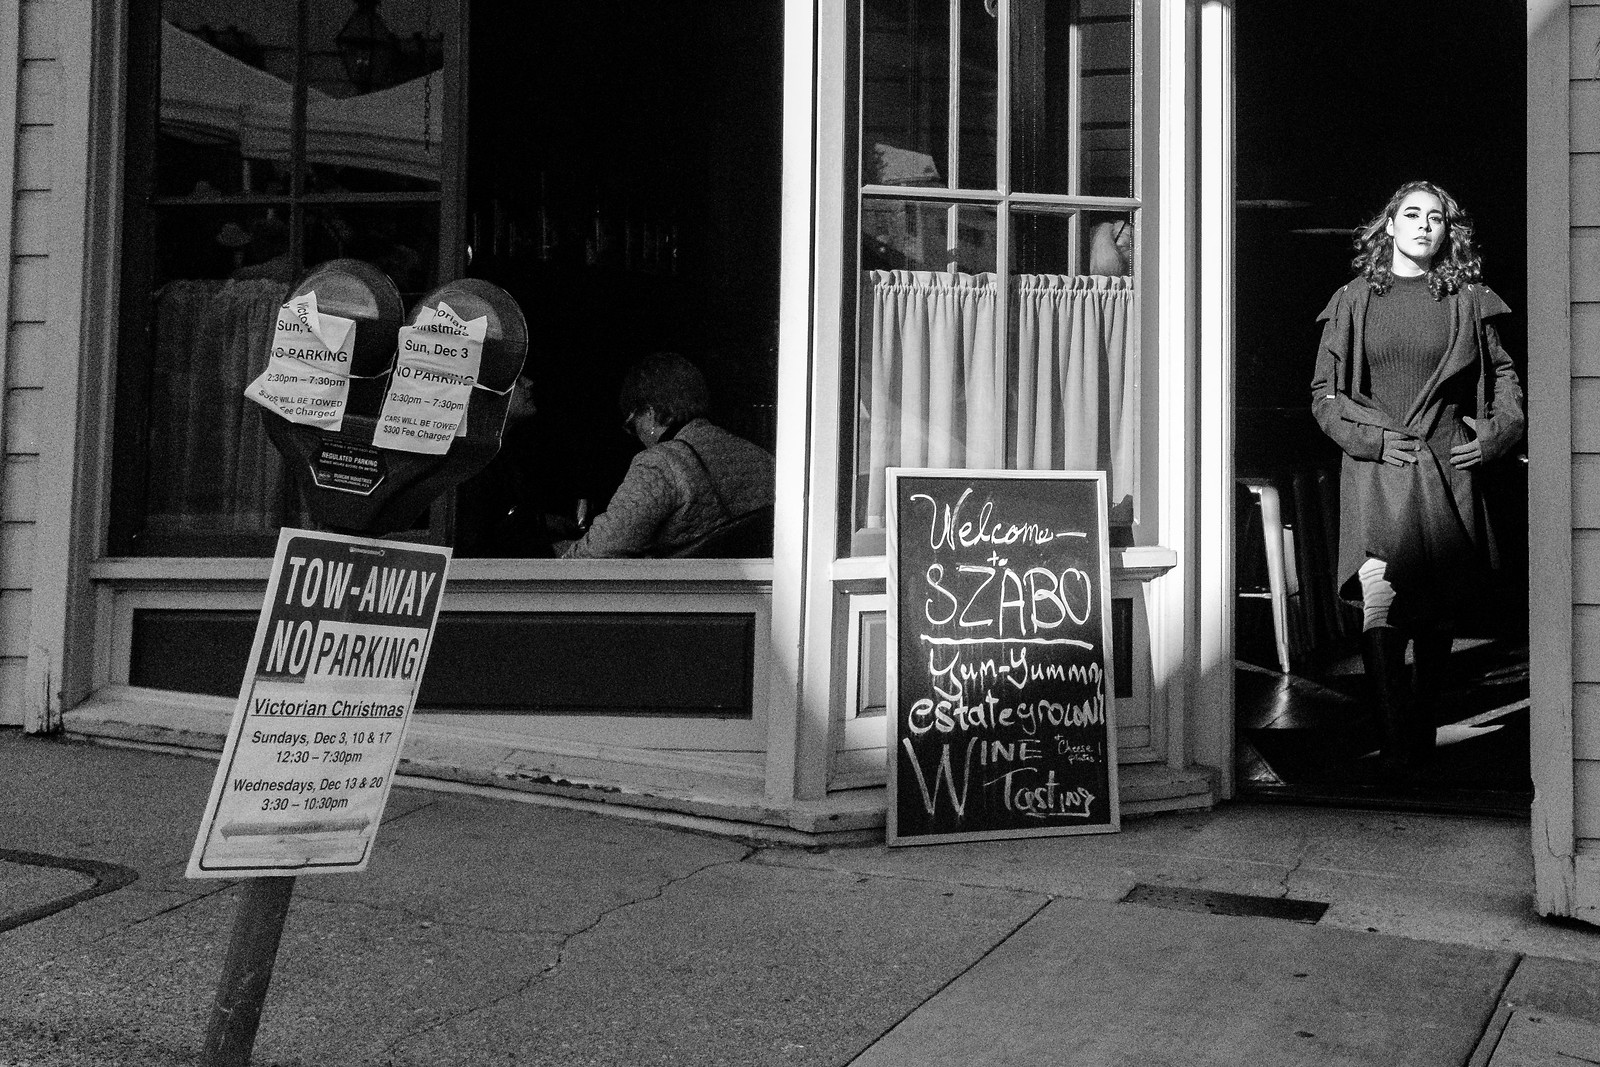 Victo
Sun,
NO PARKING
2:30pm – 7:30pm
WILL BE TOWED
Fee Charged
orian
hristmas
Sun, Dec 3
NO PARKING
12:30pm – 7:30pm
CARS WILL BE TOWED
$300 Fee Charged
REGULATED PARKING
DUNCAN INDUSTRIES
TOW-AWAY
NO PARKING
Victorian Christmas
Sundays, Dec 3, 10 & 17
12:30 – 7:30pm
Wednesdays, Dec 13 & 20
3:30 – 10:30pm
Welcome—
to
SZABO
Yum-Yummy
estate grown
WINE + Cheese plates!
Tasting